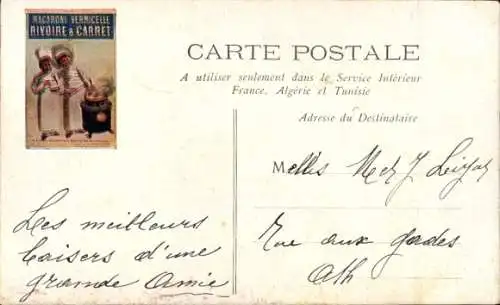 MACARONI VERMICELLE
RIVOIRE & CARRET
CARTE POSTALE
A utiliser seulement dans le Service Intérieur
France, Algérie et Tunisie
Adresse du Destinataire
Melles M et J
Rue aux gades
Ath
Les meilleurs
baisers d'une
grande Amie